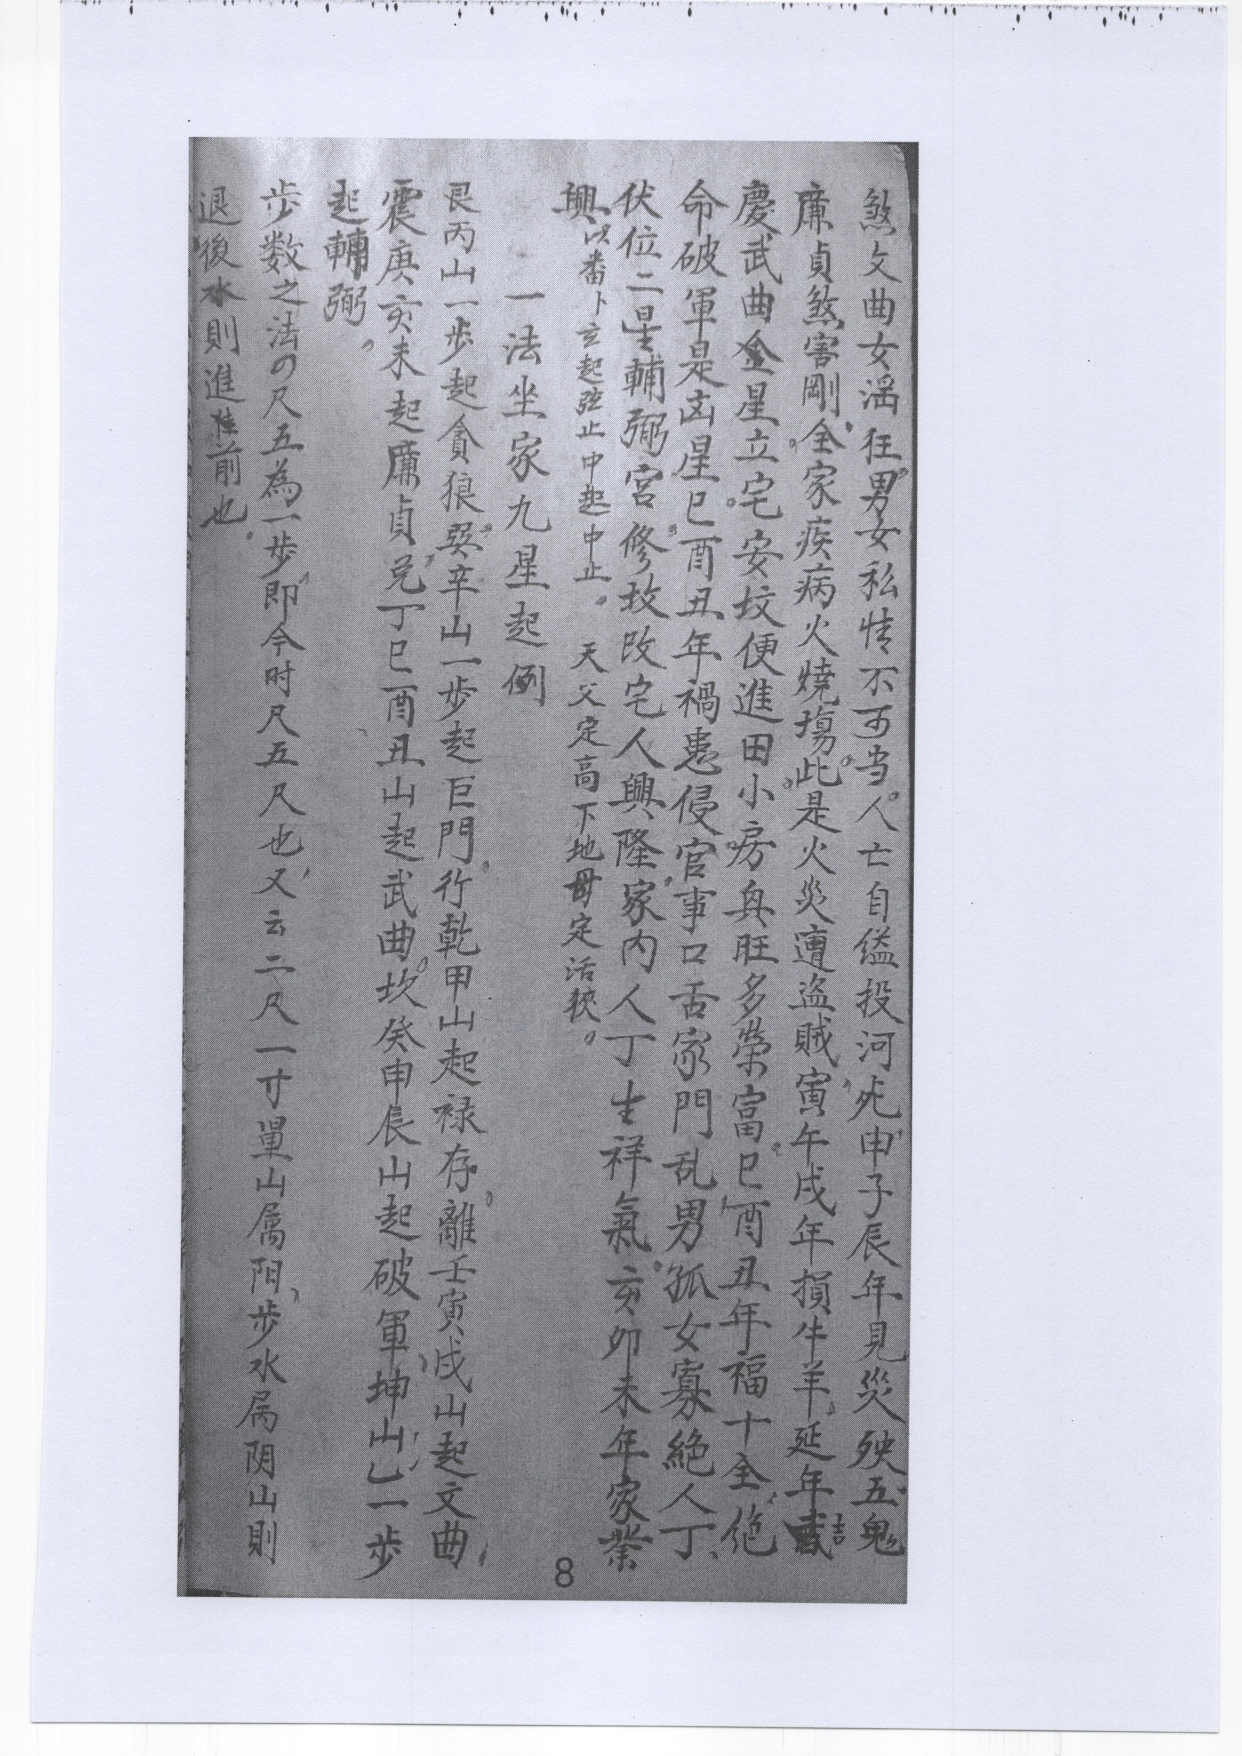 煞文曲女滛狂男女私情不可当人亡自縊投河死申子辰年見災殃五鬼
廉貞煞害剛全家疾病火燒塲此是火災遭盗賊寅午戌年損牛羊延年吉
慶武曲金星立宅安坟便進田小房興旺多榮富巳酉丑年福十全絶
命破軍是凶星巳酉丑年禍患侵官事口舌家門乱男孤女寡絕人丁
伏位二星輔弼宮修坟改宅人興隆家内人丁生祥氣亥卯未年家業
興以番卜玄起弦止中起中止。天父定高下地母定活
一法坐家九星起例
艮丙山一步起貪狼巽辛山一步起巨門行乾甲山起禄存離壬寅戌山起文曲
震庚亥未起廉貞兌丁巳酉丑山起武曲坎癸申辰山起破軍坤山乚一步
起輔弼。
步数之法の尺五為一步即今时尺五尺也又云二尺一寸單山属阳步水属阴山則
退後水則進進前也。
8